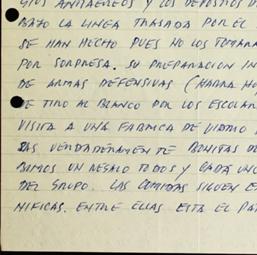 ANTIAEREOS Y LOS DEPOSITOS D
BAJO LA LINEA TRASADA POR EL
SE HAN HECHO PUES NO LOS TOMARA
POR SORPRESA. SU PREPARACION IN
DE ARMAS DEFENSIVAS (HABRA HO
DE TIRO AL BLANCO POR LOS ESCOLAR
VISITA A UNA FABRICA DE VIDRIO
DAS VERDADERAMENTE BONITAS DE
BIMOS UN REGALO TODOS Y CADA UNO
DEL GRUPO. LAS COMIDAS SIGUEN
NIFICAS. ENTRE ELLAS ESTA EL PA